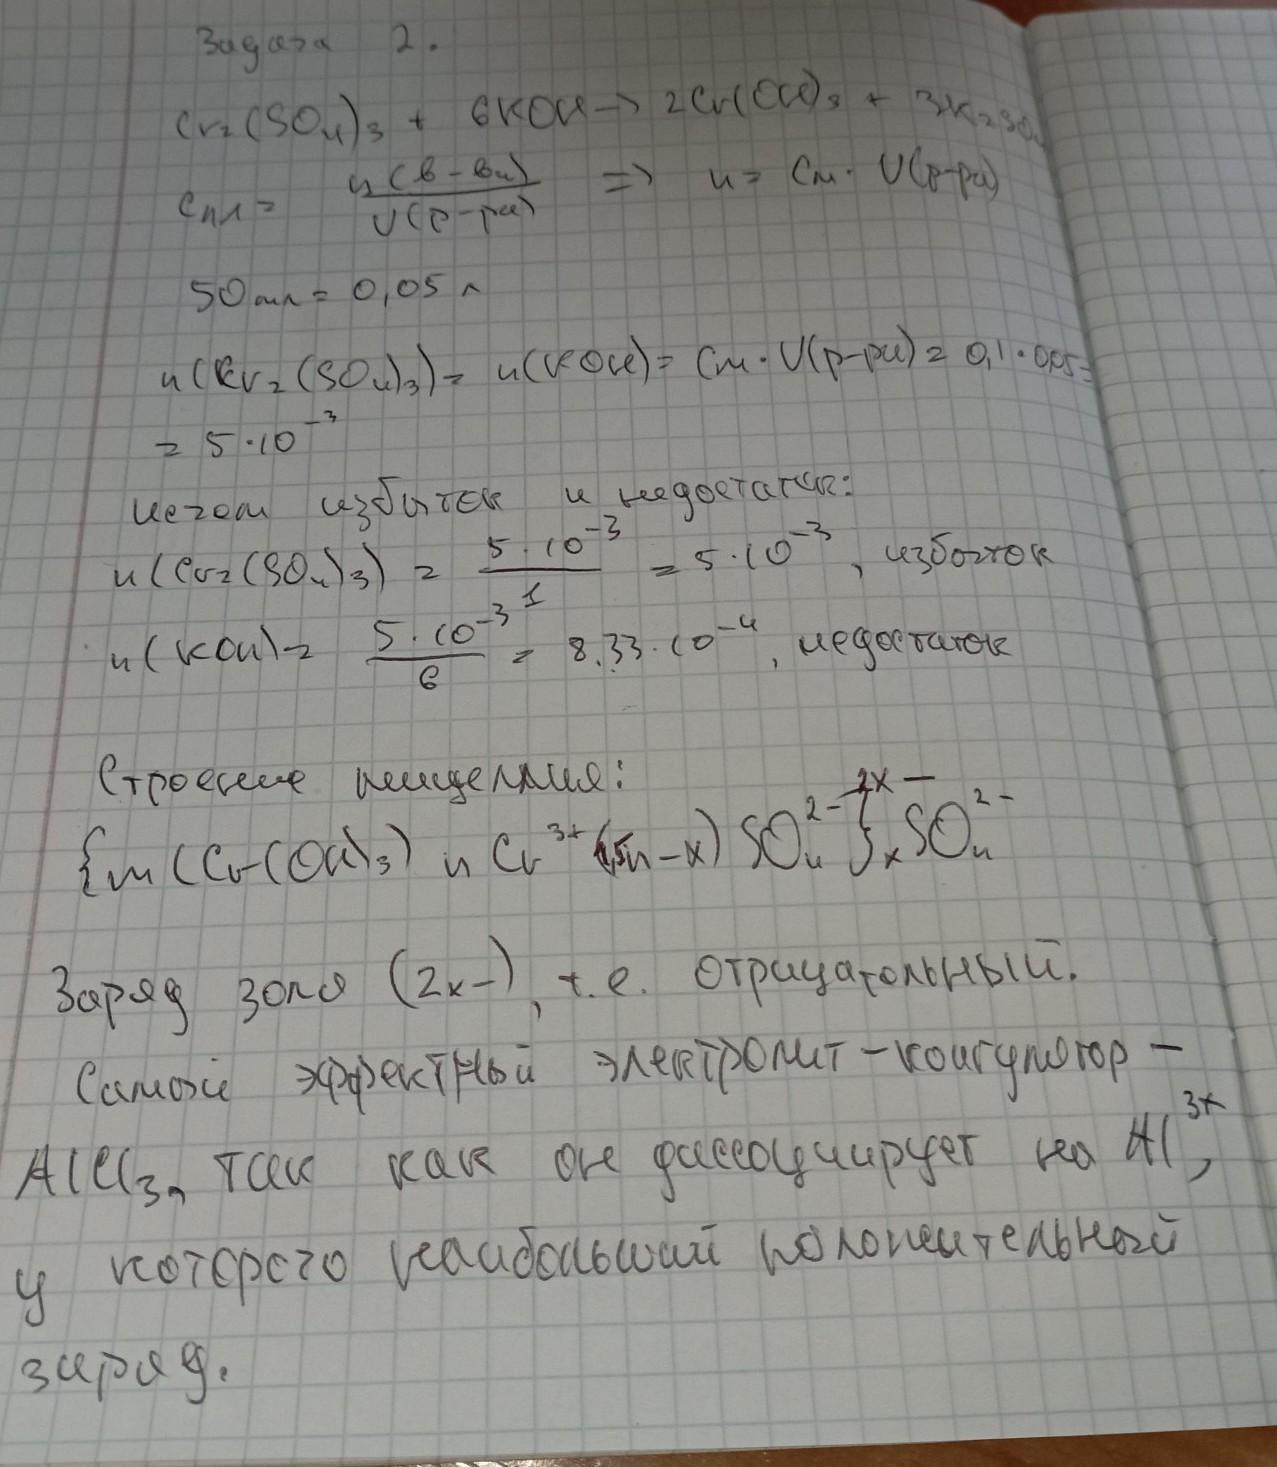 Задача 2.
Cr₂(SO₄)₃ + 6KOH → 2Cr(OH)₃ + 3K₂SO₄
Cм = n(в-ва) / V(р-ра) => n = Cм · V(р-ра)
50мл = 0,05 л
n(Cr₂(SO₄)₃) = n(KOH) = Cм · V(р-ра) = 0,1 · 0,05 =
= 5·10⁻³
ищем избыток и недостаток:
n(Cr₂(SO₄)₃) = 5·10⁻³ / 1 = 5·10⁻³, избыток
n(KOH) = 5·10⁻³ / 6 = 8,33·10⁻⁴, недостаток
Строение мицеллы:
{m(Cr(OH)₃) n Cr³⁺ (1,5n-x) SO₄²⁻}²ˣ⁻ x SO₄²⁻
Заряд золя (2x-), т.е. отрицательный.
Самый эффективный электролит-коагулятор -
AlCl₃, так как он диссоциирует на Al³⁺,
у которого наибольший положительный
заряд.